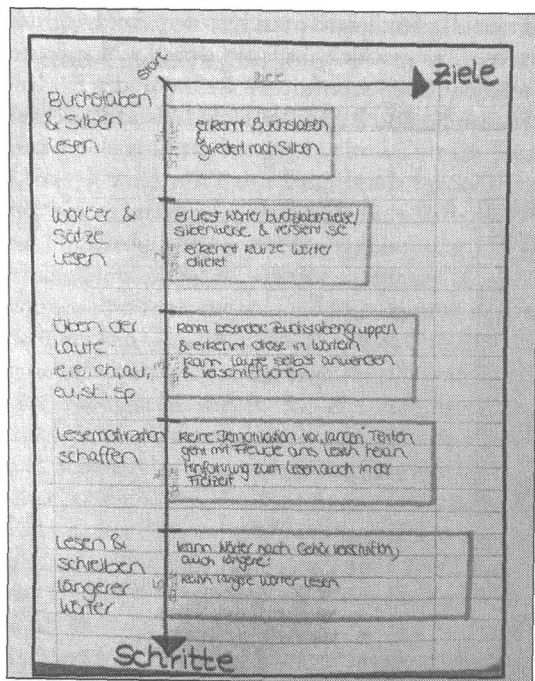 Start
Ziele
Buchstaben
& Silben
lesen
erkennt Buchstaben
gliedert nach Silben
Wörter &
Sätze
lesen
erliest Wörter buchstabenweise/
silbenweise & versteht sie
erkennt kurze Wörter
direkt
Üben der
Laute
ie, ei, ch, au,
eu, st, sp
kennt besondere Buchstabengruppen
& erkennt diese in Wörtern
kann Laute selbst anwenden
& verschriftlichen
Lesemotivation
schaffen
keine Demotivation vor „langen“ Texten
geht mit Freude ans Lesen heran
Hinführung zum Lesen auch in der
Freizeit
Lesen &
schreiben
längerer
Wörter
kann Wörter nach Gehör verschriften,
auch längere!
kann längere Wörter lesen
Schritte